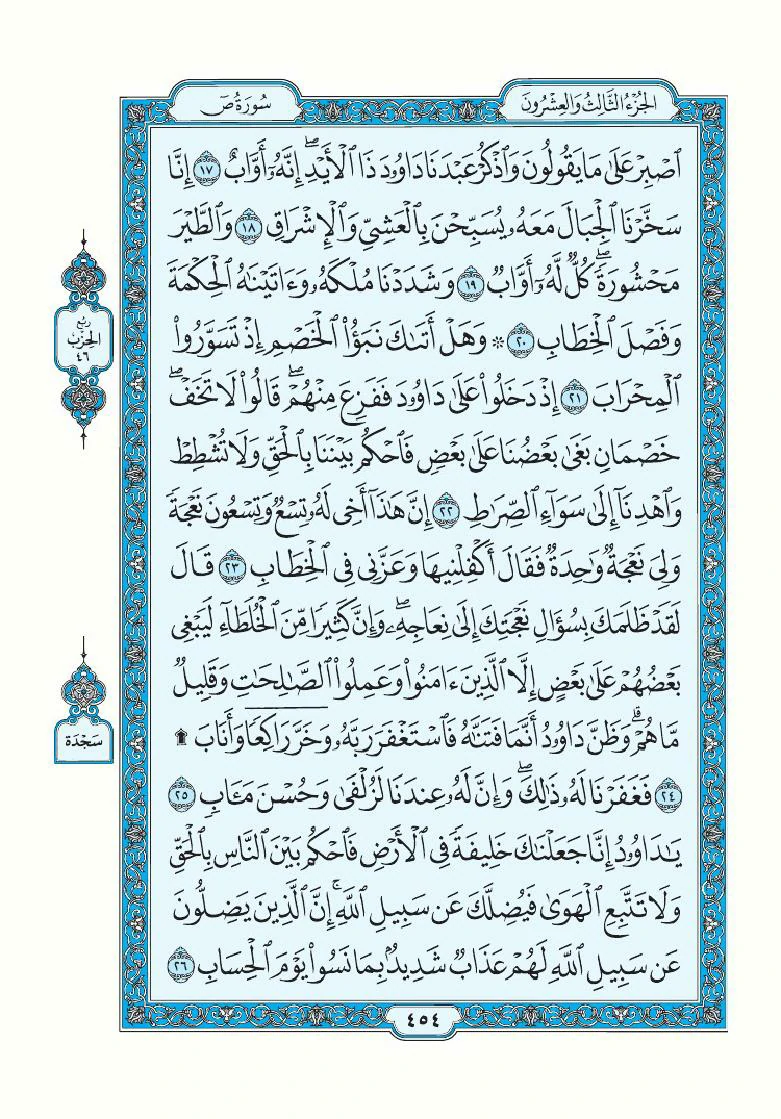 الجُزْءُ الثَّالِثُ وَالعِشْرُونَ
سُورَةُ صٓ
ٱصۡبِرۡ عَلَىٰ مَا يَقُولُونَ وَٱذۡكُرۡ عَبۡدَنَا دَاوُۥدَ ذَا ٱلۡأَيۡدِۖ إِنَّهُۥٓ أَوَّابٌ ١٧ إِنَّا
سَخَّرۡنَا ٱلۡجِبَالَ مَعَهُۥ يُسَبِّحۡنَ بِٱلۡعَشِيِّ وَٱلۡإِشۡرَاقِ ١٨ وَٱلطَّيۡرَ
مَحۡشُورَةٗۖ كُلّٞ لَّهُۥٓ أَوَّابٞ ١٩ وَشَدَدۡنَا مُلۡكَهُۥ وَءَاتَيۡنَٰهُ ٱلۡحِكۡمَةَ
وَفَصۡلَ ٱلۡخِطَابِ ٢٠ ۞ وَهَلۡ أَتَىٰكَ نَبَؤُاْ ٱلۡخَصۡمِ إِذۡ تَسَوَّرُواْ
ٱلۡمِحۡرَابَ ٢١ إِذۡ دَخَلُواْ عَلَىٰ دَاوُۥدَ فَفَزِعَ مِنۡهُمۡۖ قَالُواْ لَا تَخَفۡۖ
خَصۡمَانِ بَغَىٰ بَعۡضُنَا عَلَىٰ بَعۡضٖ فَٱحۡكُم بَيۡنَنَا بِٱلۡحَقِّ وَلَا تُشۡطِطۡ
وَٱهۡدِنَآ إِلَىٰ سَوَآءِ ٱلصِّرَٰطِ ٢٢ إِنَّ هَٰذَآ أَخِي لَهُۥ تِسۡعٞ وَتِسۡعُونَ نَعۡجَةٗ
وَلِيَ نَعۡجَةٞ وَٰحِدَةٞ فَقَالَ أَكۡفِلۡنِيهَا وَعَزَّنِي فِي ٱلۡخِطَابِ ٢٣ قَالَ
لَقَدۡ ظَلَمَكَ بِسُؤَالِ نَعۡجَتِكَ إِلَىٰ نِعَاجِهِۦۖ وَإِنَّ كَثِيرٗا مِّنَ ٱلۡخُلَطَآءِ لَيَبۡغِي
بَعۡضُهُمۡ عَلَىٰ بَعۡضٍ إِلَّا ٱلَّذِينَ ءَامَنُواْ وَعَمِلُواْ ٱلصَّٰلِحَٰتِ وَقَلِيلٞ
مَّا هُمۡۗ وَظَنَّ دَاوُۥدُ أَنَّمَا فَتَنَّٰهُ فَٱسۡتَغۡفَرَ رَبَّهُۥ وَخَرَّۤ رَاكِعٗاۤ وَأَنَابَ ۩
٢٤ فَغَفَرۡنَا لَهُۥ ذَٰلِكَۖ وَإِنَّ لَهُۥ عِندَنَا لَزُلۡفَىٰ وَحُسۡنَ مَـَٔابٖ ٢٥
يَٰدَاوُۥدُ إِنَّا جَعَلۡنَٰكَ خَلِيفَةٗ فِي ٱلۡأَرۡضِ فَٱحۡكُم بَيۡنَ ٱلنَّاسِ بِٱلۡحَقِّ
وَلَا تَتَّبِعِ ٱلۡهَوَىٰ فَيُضِلَّكَ عَن سَبِيلِ ٱللَّهِۚ إِنَّ ٱلَّذِينَ يَضِلُّونَ
عَن سَبِيلِ ٱللَّهِ لَهُمۡ عَذَابٞ شَدِيدُۢ بِمَا نَسُواْ يَوۡمَ ٱلۡحِسَابِ ٢٦
رُبْع
الحِزْب
٤٦
سَجْدَة
٤٥٤